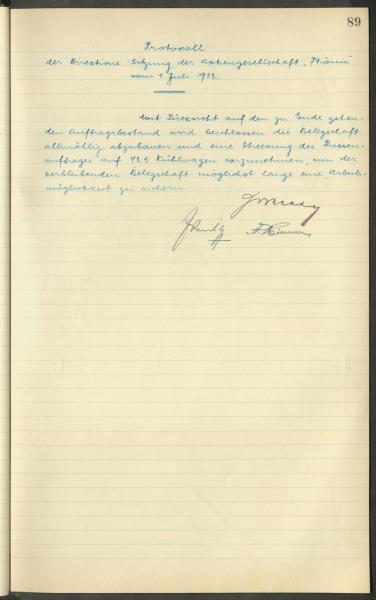 89
Protokoll
der Direktions-Sitzung der Aktiengesellschaft „Phönix"
vom 1. Juli 1932
Mit Rücksicht auf den zu Ende gehen-
den Auftragsbestand wird beschlossen die Belegschaft
allmählig abzubauen und eine Streckung des Russen-
auftrages auf 42,5 Kühlwagen vorzunehmen, um der
verbleibenden Belegschaft möglichst lange eine Arbeits-
möglichkeit zu sichern.